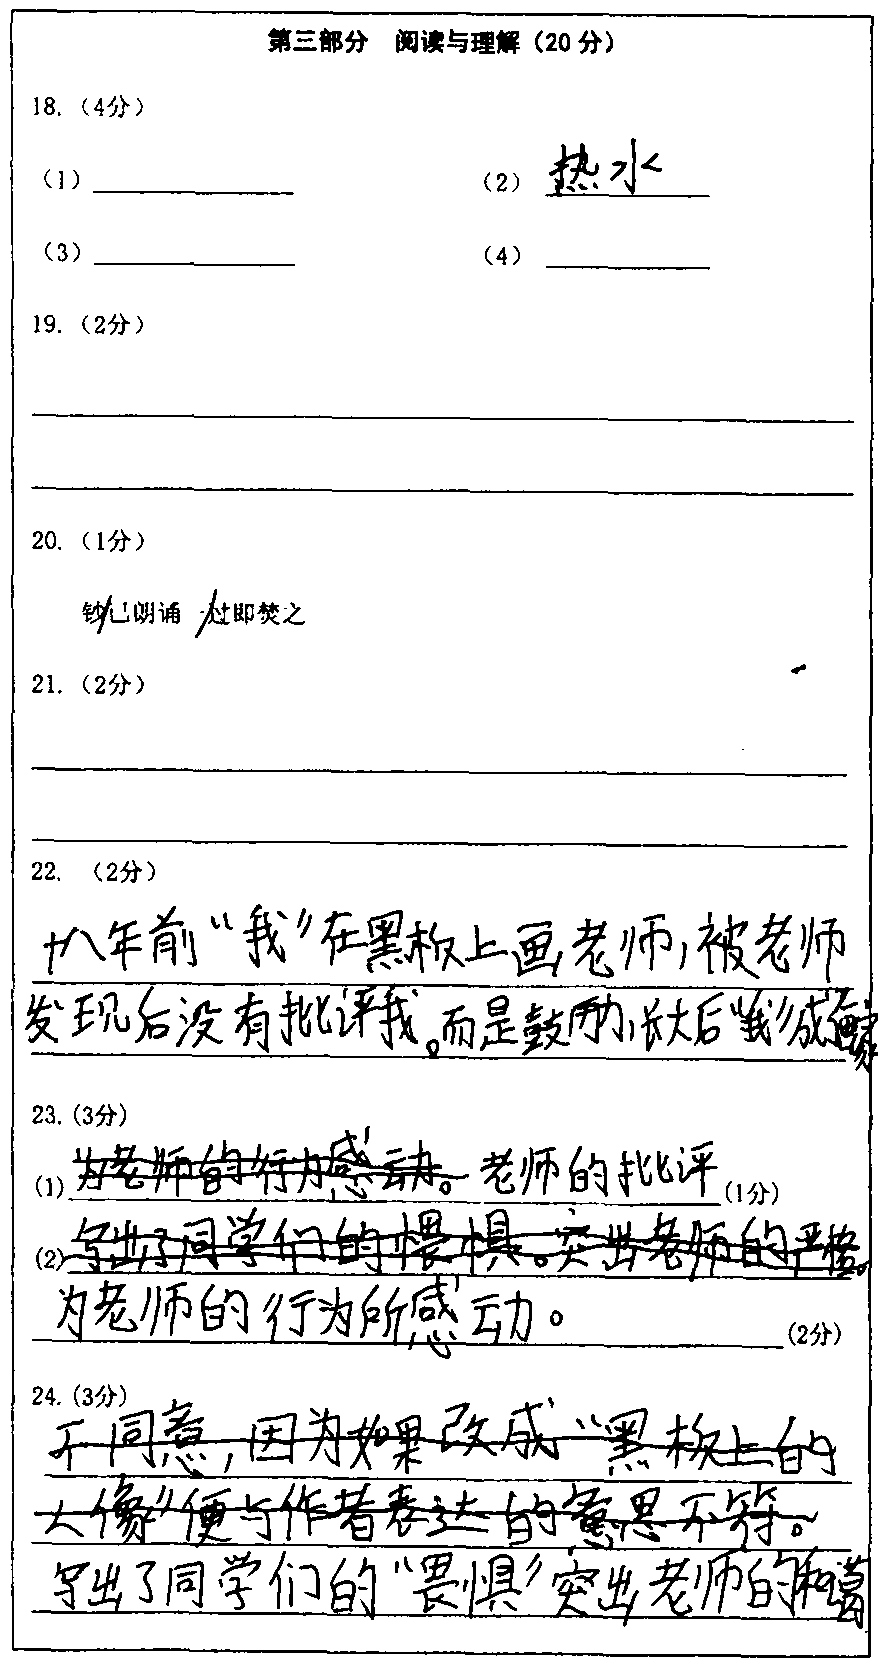 第三部分 阅读与理解（20分）
18.（4分）
（1） （2）热水
（3） （4）
19.（2分）
20.（1分）
钞已朗诵 过即焚之
21.（2分）
22. （2分）
十八年前“我”在黑板上画老师，被老师
发现后没有批评我。而是鼓励，长大后“我”成
23.(3分)
(1)为老师的行为感动。老师的批评(1分)
(2)写出了同学们的畏惧。突出老师的严格。
为老师的行为所感动。(2分)
24.(3分)
不同意，因为如果改成“黑板上的
人像”便与作者表达的意思不符。
写出了同学们的“畏惧”突出老师的和蔼